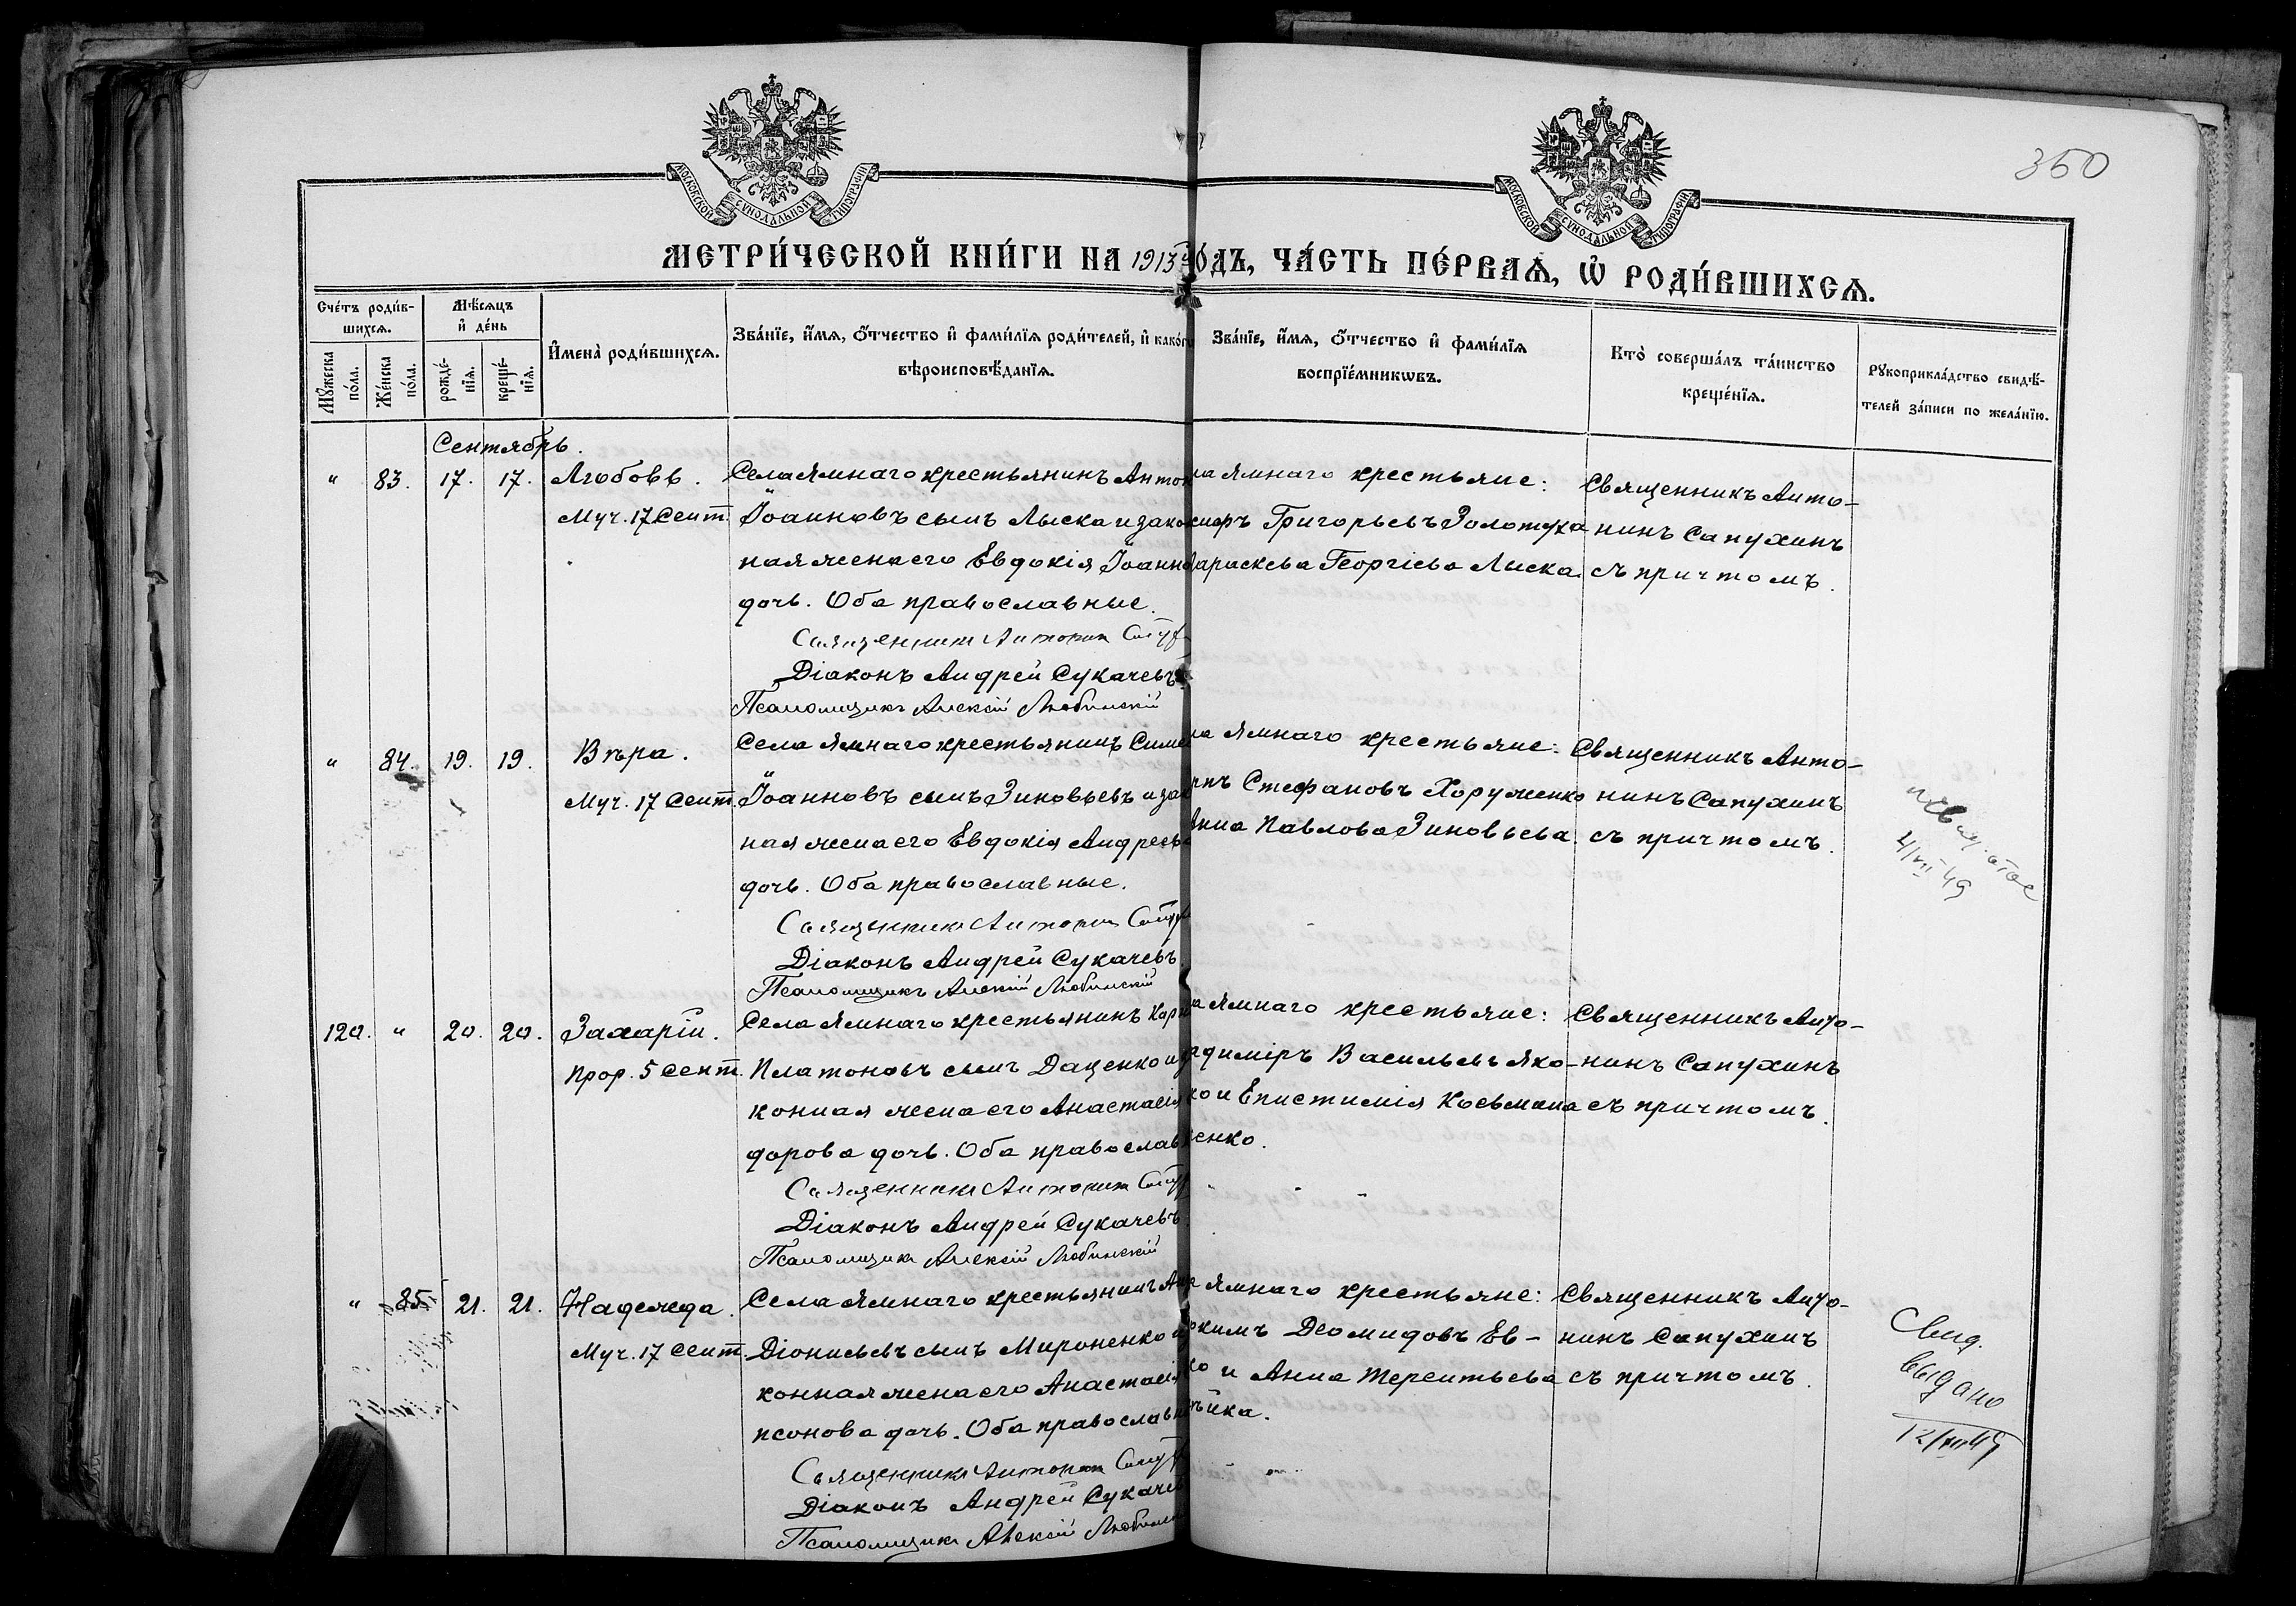 350
МОСКОВСКОЙ СѴНОДАЛЬНОЙ ТИПОГРАФІИ
МОСКОВСКОЙ СѴНОДАЛЬНОЙ ТИПОГРАФІИ
МЕТРИ́ЧЕСКОЙ КНИ́ГИ НА 1913 ГО́ДЪ, ЧА́СТЬ ПЕ́РВАѦ, Ѡ҆ РОДИ́ВШИХСѦ.
Сче́тъ роди́в-
шихсѧ.
Мꙋ́жеска по́ла.
Же́нска по́ла.
Мѣ́сѧцъ
и҆ де́нь
рожде́-
нїѧ.
креще́-
нїѧ.
И҆мена̀ роди́вшихсѧ.
Зва́нїе, и҆́мѧ, ѻ҆́тчество и҆ фами́лїѧ роди́телей, и҆ како́го
вѣроисповѣ́данїѧ.
Зва́нїе, и҆́мѧ, ѻ҆́тчество и҆ фами́лїѧ
воспрїе́мникѡвъ.
Кто̀ соверша́лъ та́инство
креще́нїѧ.
Рꙋкоприкла́дство свидѣ́-
телей за́писи по жела́нїю.
Сентябрь.
" 83. 17. 17. Любовь.
Муч. 17 Сент.
Села Ямнаго крестьянинъ Антон
Іоанновъ сынъ Лыска и зако
ная жена его Евдокія Іоанно
дочь. Оба православные.
Священникъ Антонин
Діаконъ Андрей Сукачевъ
Псаломщикъ Алексій Любинскій
ла Ямнаго крестьяне:
сифъ Григорьевъ Золотуха
араскева Георгіева Лыска.
Священникъ Анто-
нинъ Сапухинъ
съ причтомъ.
" 84. 19. 19. Вѣра.
Муч. 17 Сент.
Села Ямнаго крестьянинъ Симе
Іоанновъ сынъ Зиновьевъ и зак
ная жена его Евдокія Андреева
дочь. Оба православные.
Священникъ Антонин
Діаконъ Андрей Сукачевъ.
Псаломщикъ Алексій Любинскій
ла Ямнаго крестьяне:
Стефановъ Хоруженко
Анна Павлова Зиновьева.
Священникъ Анто-
нинъ Сапухинъ
съ причтомъ.
4/VII 49
120. " 20. 20. Захарій.
Прор. 5 Сент.
Села Ямнаго крестьянинъ Кар
Платоновъ сынъ Даценко и
конная жена его Анастасія
дорова дочь. Оба православ
Священникъ Антонин
Діаконъ Андрей Сукачевъ.
Псаломщикъ Алексій Любинскій
ла Ямнаго крестьяне:
адиміръ Васильевъ Яко-
ко и Епистимія Косьмина
енко.
Священникъ Анто-
нинъ Сапухинъ
съ причтомъ.
" 85 21. 21. Надежда.
Муч. 17 Сент.
Села Ямнаго крестьянинъ
Діонисьевъ сынъ Мироненко и
конная жена его Анастасія
псонова дочь. Оба православн
Священникъ Антонин
Діаконъ Андрей Сукачев
Псаломщикъ Алексій Любинск
Ямнаго крестьяне:
кимъ Деомидовъ Ев-
ко и Анна Терентьева
ика.
Священникъ Анто-
нинъ Сапухинъ
съ причтомъ.
Свид.
выдано